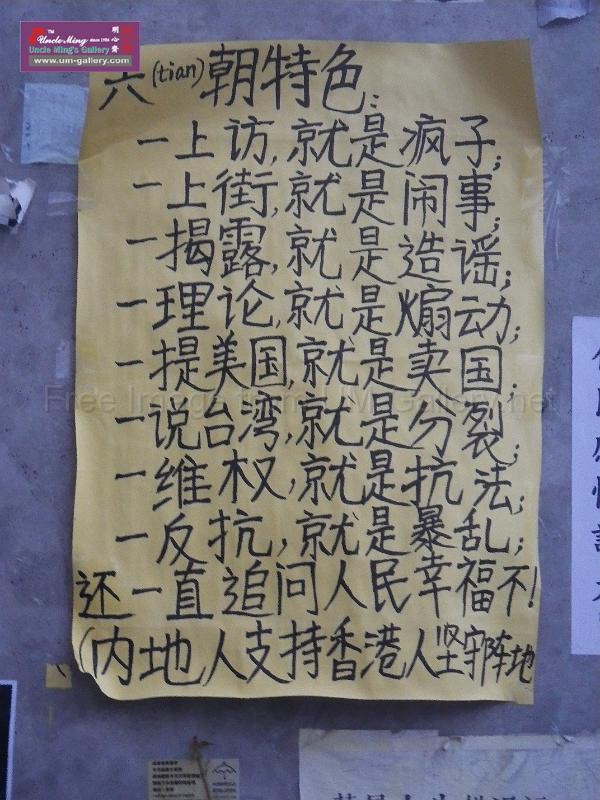 TM
Uncle Ming since 1984
Uncle Ming's Gallery
明心齋
www.um-gallery.com
兲(tian)朝特色:
一上访,就是疯子;
一上街,就是闹事;
一揭露,就是造谣;
一理论,就是煽动;
一提美国,就是卖国;
一说台湾,就是分裂;
一维权,就是抗法;
一反抗,就是暴乱;
还一直追问人民幸福不!
(内地)人支持香港人坚守阵地
Free Image from UM-Gallery.net